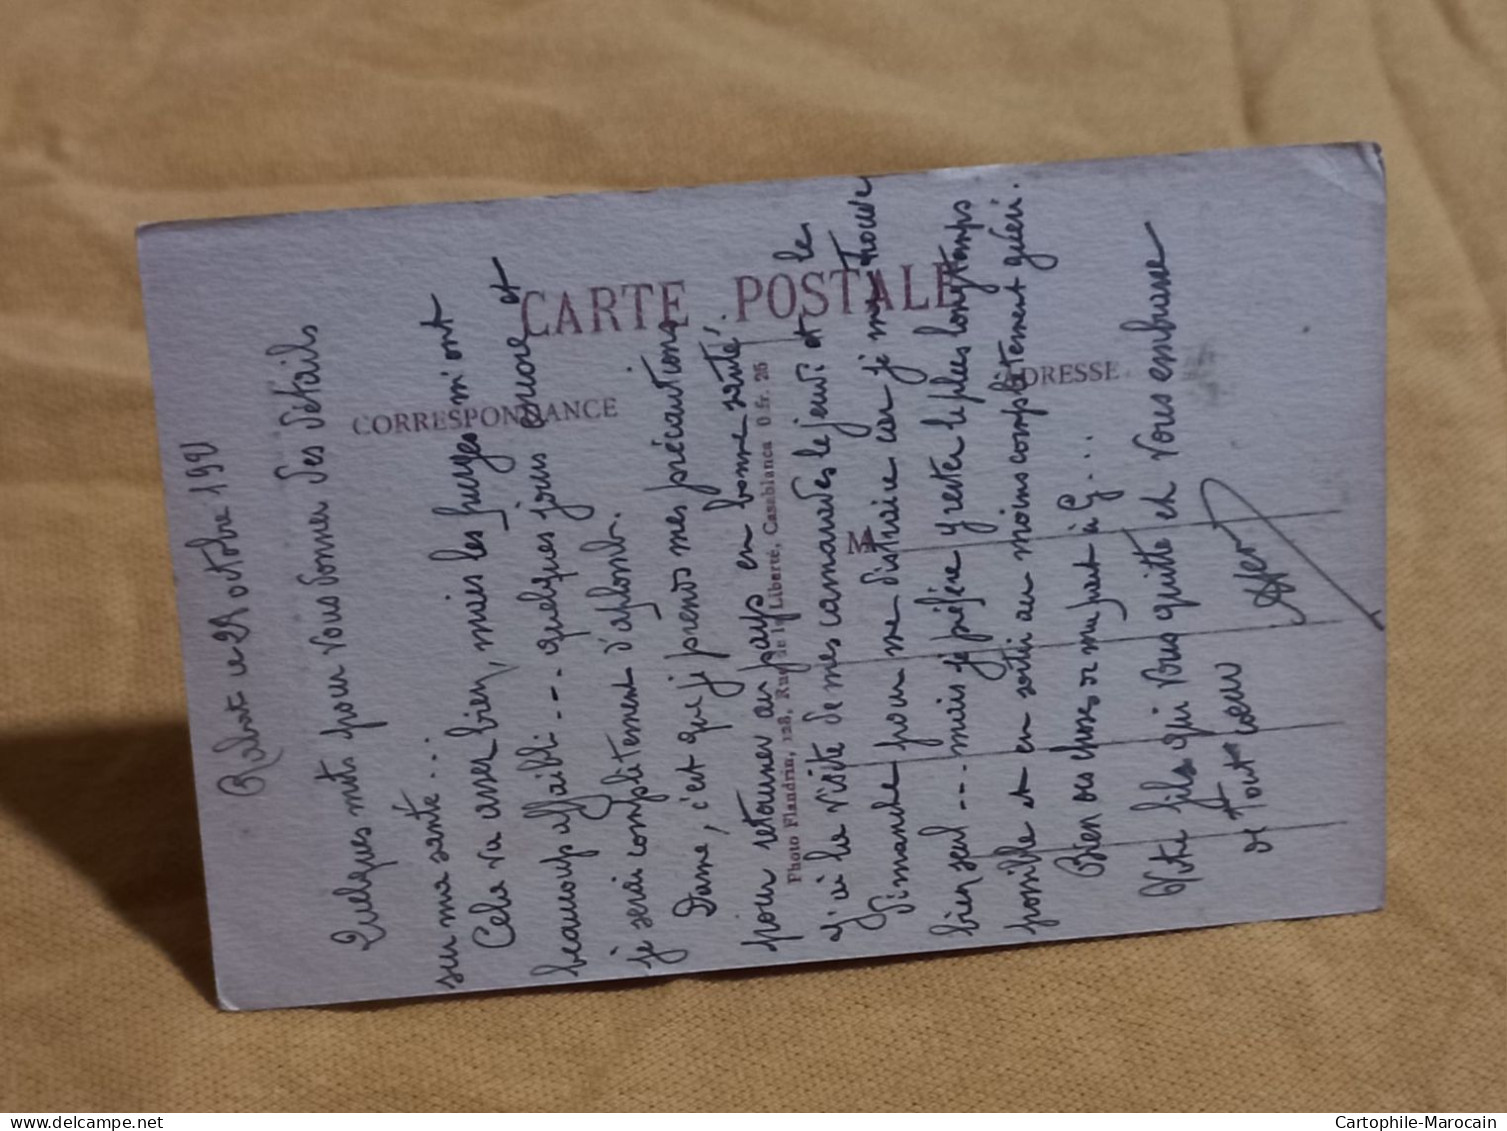 CARTE POSTALE
CORRESPONDANCE
ADRESSE
M
Photo Flandrin, 128, Rue de la Liberté, Casablanca 0 fr. 25
Rabat le octobre 192
Quelques mots pour vous donner des détails
sur ma santé...
Cela va assez bien, mais les purges m'ont
beaucoup affaibli... quelques jours encore et
je serai complètement d'aplomb.
Dame, c'est que je prends mes précautions
pour retourner au pays en bonne santé.
J'ai la visite de mes camarades le jeudi et le
dimanche pour me distraire car je me trouve
bien seul... mais je préfère y rester le plus longtemps
possible et en sortir au moins complètement guéri.
Bien des choses de ma part à G...
Votre fils qui vous quitte et vous embrasse
de tout cœur
Cartophile-Marocain